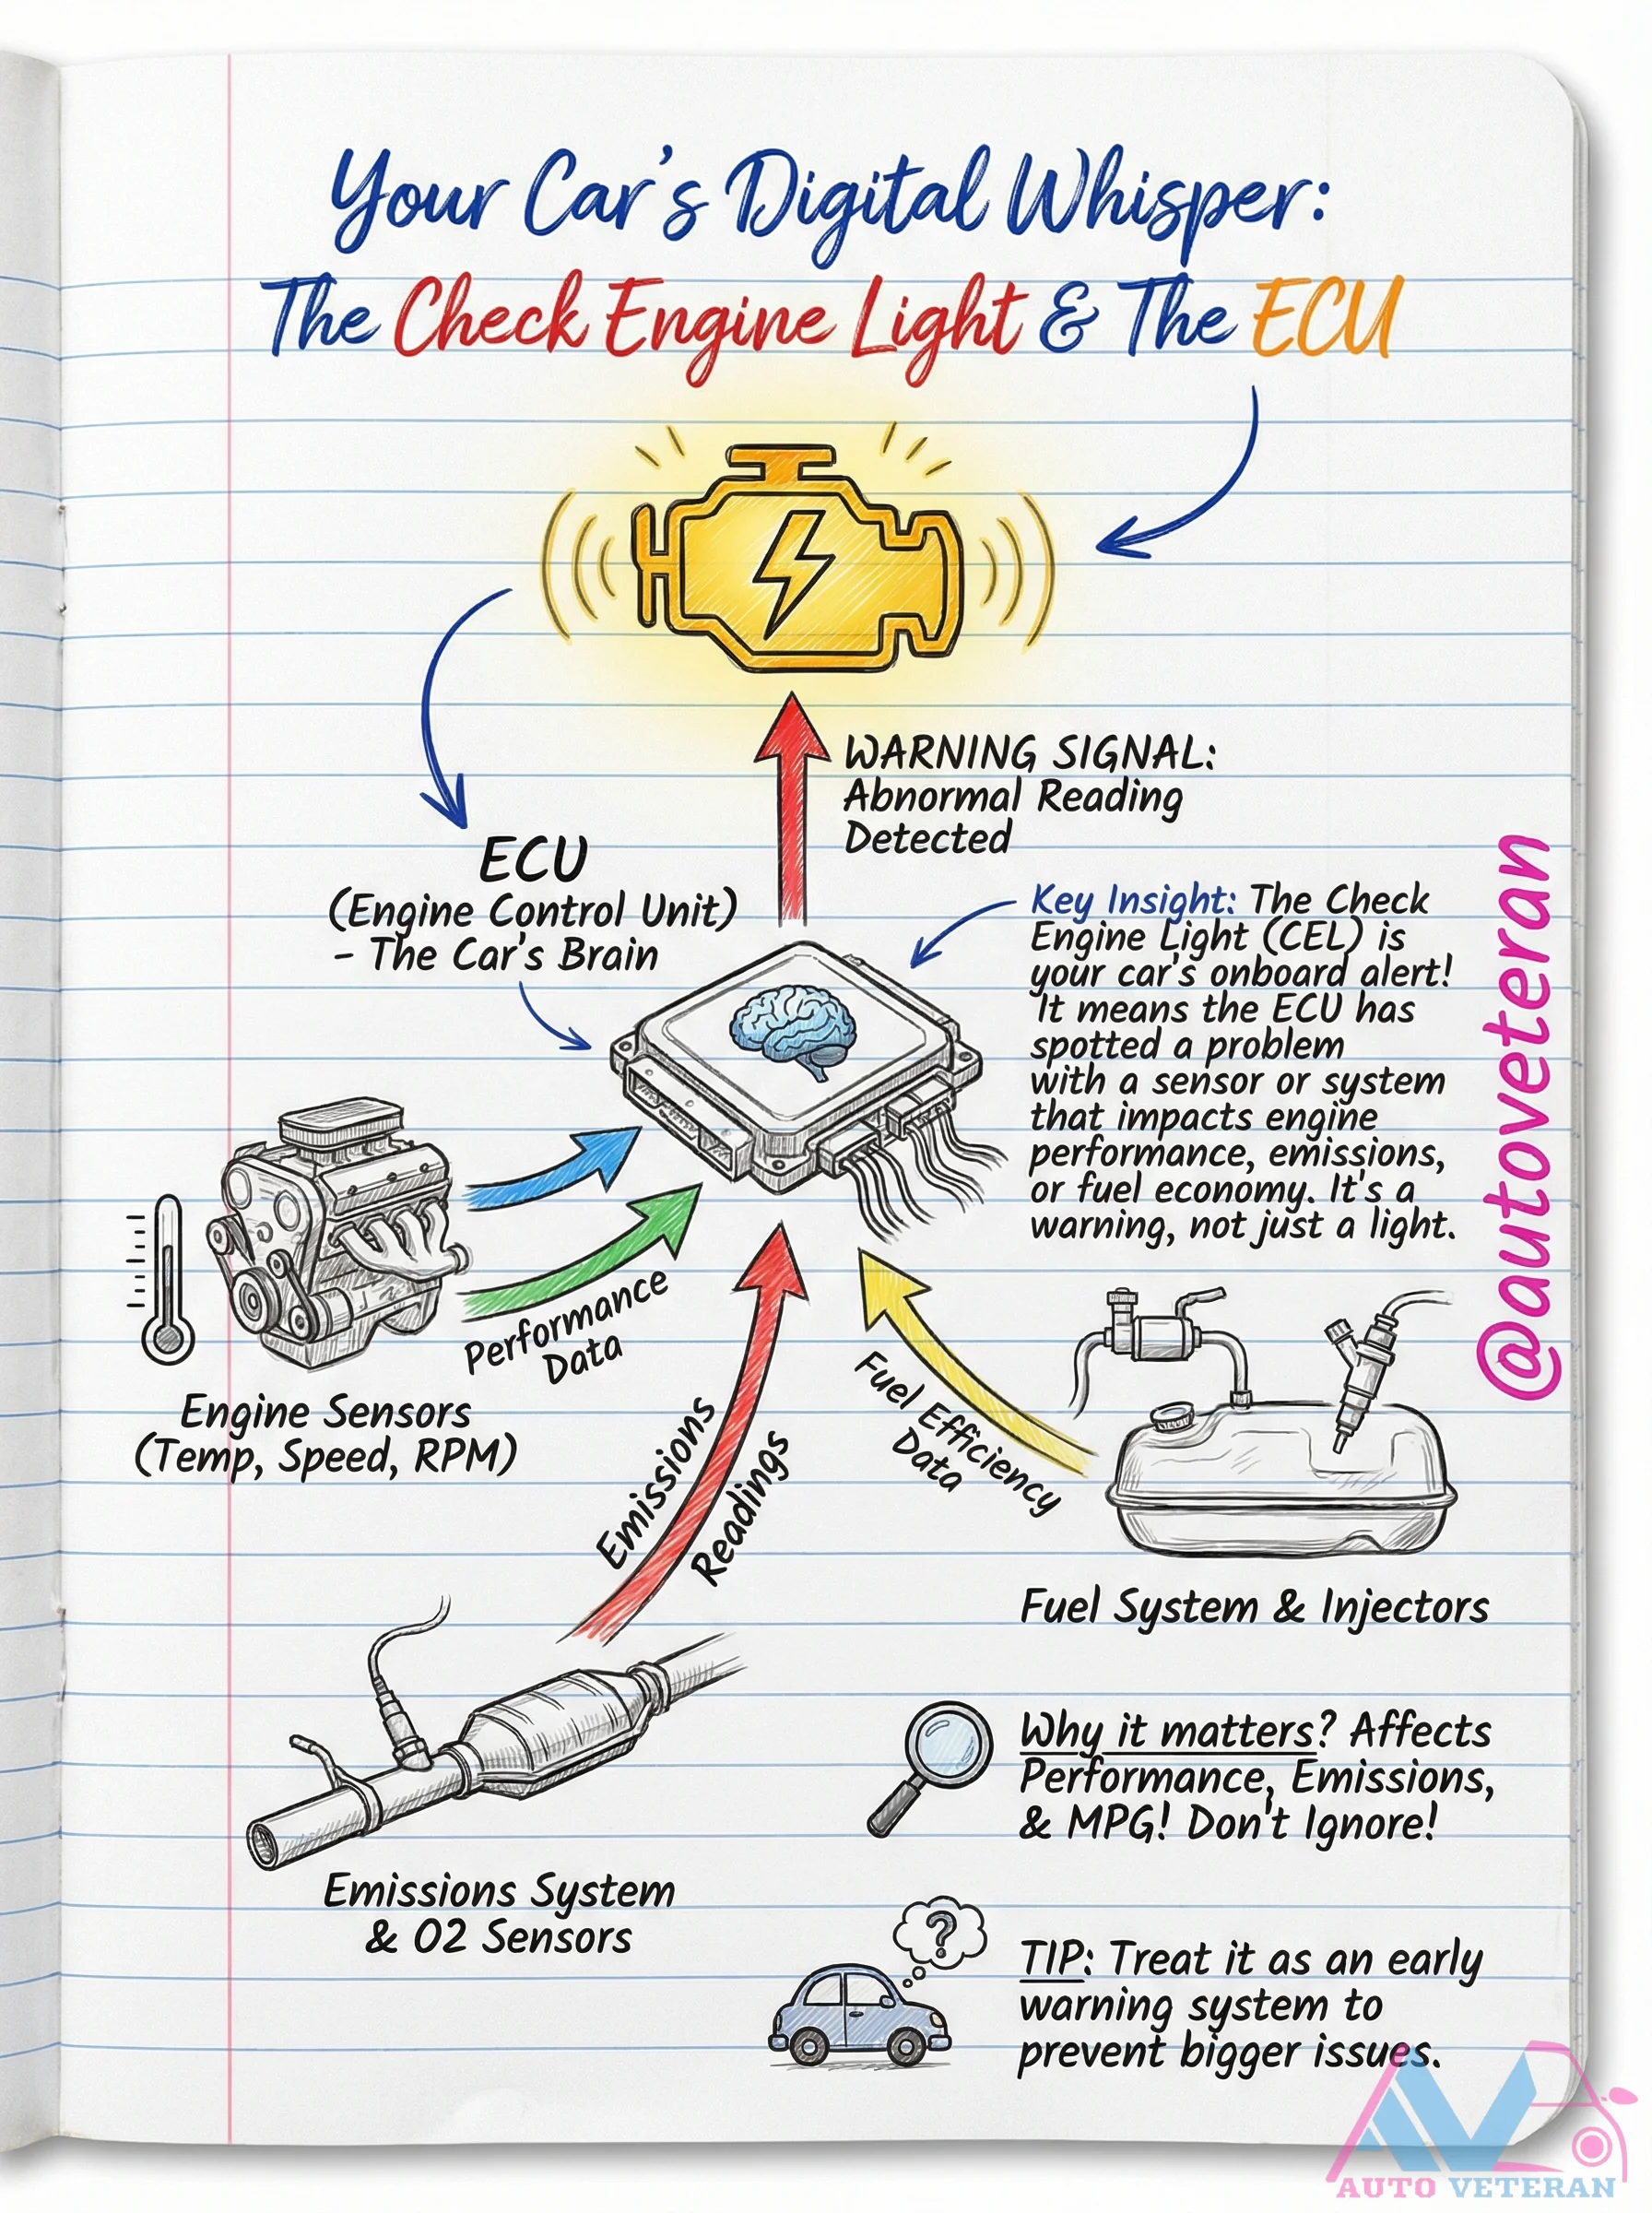 Your Car's Digital Whisper:
The Check Engine Light & The ECU
WARNING SIGNAL:
Abnormal Reading
Detected
ECU
(Engine Control Unit)
- The Car's Brain
Key Insight: The Check
Engine Light (CEL) is
your car's onboard alert!
It means the ECU has
spotted a problem
with a sensor or system
that impacts engine
performance, emissions,
or fuel economy. It's a
warning, not just a light.
@autoveteran
Performance
Data
Engine Sensors
(Temp, Speed, RPM)
Emissions
Readings
Fuel Efficiency
Data
Fuel System & Injectors
Emissions System
& O2 Sensors
Why it matters? Affects
Performance, Emissions,
& MPG! Don't Ignore!
?
TIP: Treat it as an early
warning system to
prevent bigger issues.
AV
AUTO VETERAN